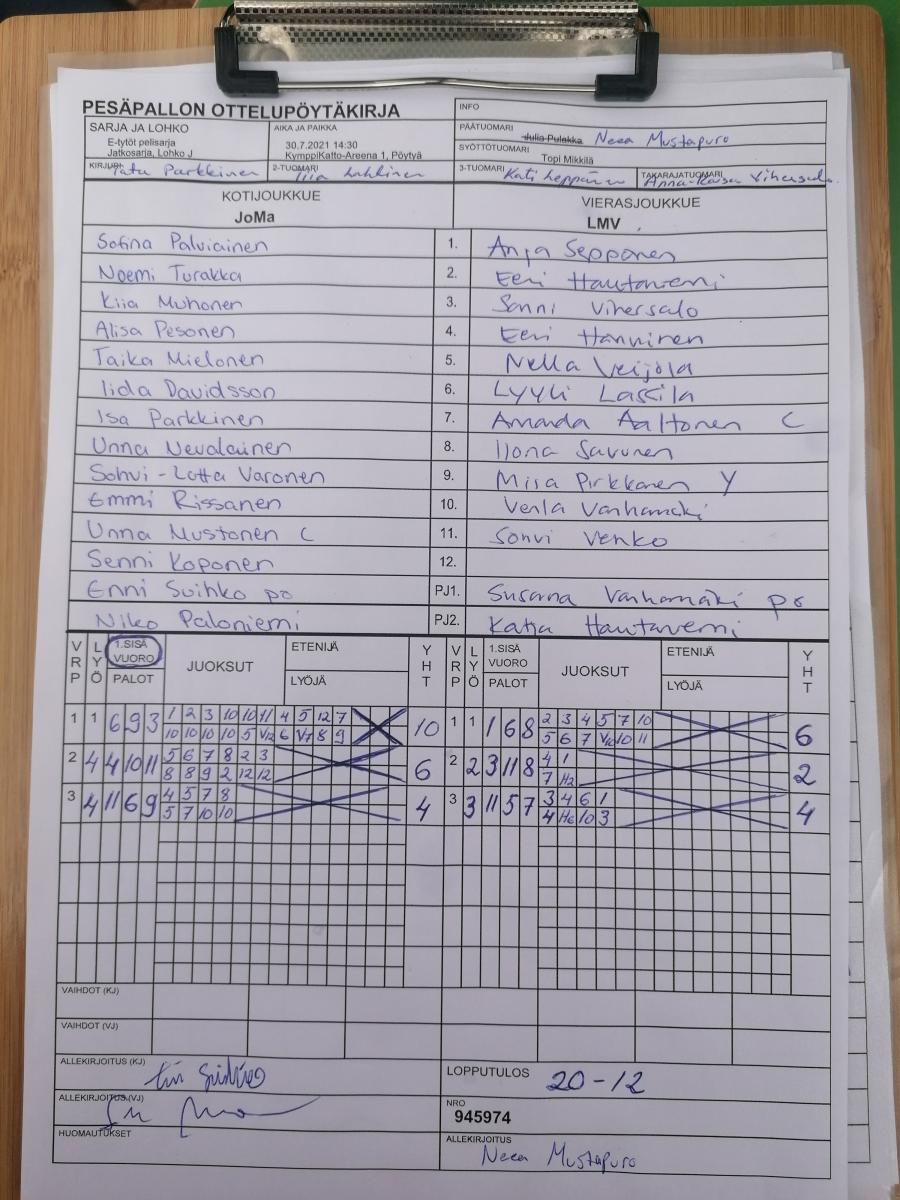 PESÄPALLON OTTELUPÖYTÄKIRJA
INFO
SARJA JA LOHKO
E-tytöt pelisarja
Jatkosarja, Lohko J
AIKA JA PAIKKA
30.7.2021 14:30
KymppiKatto-Areena 1, Pöytyä
PÄÄTUOMARI
Julia Pulakka Neea Mustapuro
SYÖTTÖTUOMARI
Topi Mikkilä
KIRJURI Parkkinen
2-TUOMARI
3-TUOMARI Kati Leppänen
TAKARAJATUOMARI Vihersalo
KOTIJOUKKUE
JoMa
VIERASJOUKKUE
LMV
Sofina Palviainen 1. Anja Sepponen
Noemi Turakka 2. Eeri Hautaviemi
Kiia Muhonen 3. Sonni Vihersalo
Alisa Pesonen 4. Eeri Hänninen
Taika Mielonen 5. Nella Veijola
Iida Davidsson 6. Lyyli Lassila
Isa Parkkinen 7. Amanda Aaltonen C
Unna Nevalainen 8. Ilona Savunen
Sohvi-Lotta Varonen 9. Misa Pirkkanen Y
Emmi Rissanen 10. Venla Vanhamäki
Unna Mustonen C 11. Sohvi Venko
Senni Koponen 12.
Enni Suihko po PJ1. Susanna Vanhamäki po
Niko Paloniemi PJ2. Katja Hautaviemi
VRP LYÖ 1.SISÄ VUORO PALOT JUOKSUT ETENIJÄ LYÖJÄ YHT VRP LYÖ 1.SISÄ VUORO PALOT JUOKSUT ETENIJÄ LYÖJÄ YHT
1 1 6 9 3 1 2 3 10 10 11 4 5 12 7 10 1 1 1 6 8 2 3 4 5 7 10 6
10 10 10 10 5 V12 6 V7 8 9 5 6 7 V10 10 11
2 4 4 10 11 5 6 7 8 2 3 6 2 2 3 11 8 4 1 2
8 8 9 2 12 12 7 H2
3 4 11 6 9 4 5 7 8 4 3 3 11 5 7 3 4 6 1 4
5 7 10 10 4 H6 10 3
VAIHDOT (KJ)
VAIHDOT (VJ)
ALLEKIRJOITUS (KJ)
LOPPUTULOS 20-12
ALLEKIRJOITUS (VJ)
NRO
945974
HUOMAUTUKSET
ALLEKIRJOITUS
Neea Mustapuro